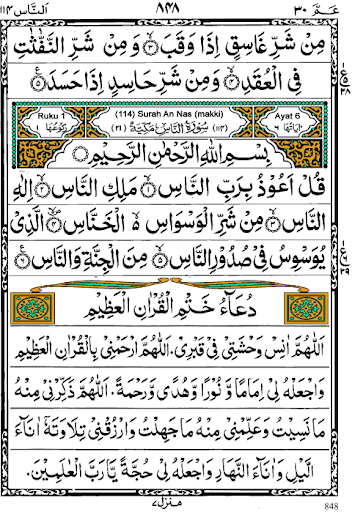 اَلنَّاس ١١٤
٨٤٨
عَـمَّ ٣٠
مِنْ شَرِّ غَاسِقٍ اِذَا وَقَبَ ۝٣ وَمِنْ شَرِّ النَّفّٰثٰتِ
فِى الْعُقَدِ ۝٤ وَمِنْ شَرِّ حَاسِدٍ اِذَا حَسَدَ ۝٥
Ruku 1
(114) Surah An Nas (makki)
Ayat 6
رُكُوْعُهَا ١
سُوْرَةُ النَّاسِ مَكِّيَّةٌ
اٰيَاتُهَا ٦
بِسْمِ اللّٰهِ الرَّحْمٰنِ الرَّحِيْمِ
قُلْ اَعُوْذُ بِرَبِّ النَّاسِ ۝١ مَلِكِ النَّاسِ ۝٢ اِلٰهِ
النَّاسِ ۝٣ مِنْ شَرِّ الْوَسْوَاسِ ۙ الْخَنَّاسِ ۝٤ الَّذِىْ
يُوَسْوِسُ فِىْ صُدُوْرِ النَّاسِ ۝٥ مِنَ الْجِنَّةِ وَالنَّاسِ ۝٦
دُعَآءُ خَتْمِ الْقُرْاٰنِ الْعَظِيْمِ
اَللّٰهُمَّ اٰنِسْ وَحْشَتِىْ فِىْ قَبْرِىْ. اَللّٰهُمَّ ارْحَمْنِىْ بِالْقُرْاٰنِ الْعَظِيْمِ
وَاجْعَلْهُ لِىْ اِمَامًا وَّ نُوْرًا وَّهُدًى وَّرَحْمَةً. اَللّٰهُمَّ ذَكِّرْنِىْ مِنْهُ
مَا نَسِيْتُ وَعَلِّمْنِىْ مِنْهُ مَا جَهِلْتُ وَارْزُقْنِىْ تِلَاوَتَهٗ اٰنَآءَ
الَّيْلِ وَاٰنَآءَ النَّهَارِ وَاجْعَلْهُ لِىْ حُجَّةً يَّارَبَّ الْعٰلَمِيْنَ.
منزل ٧
848